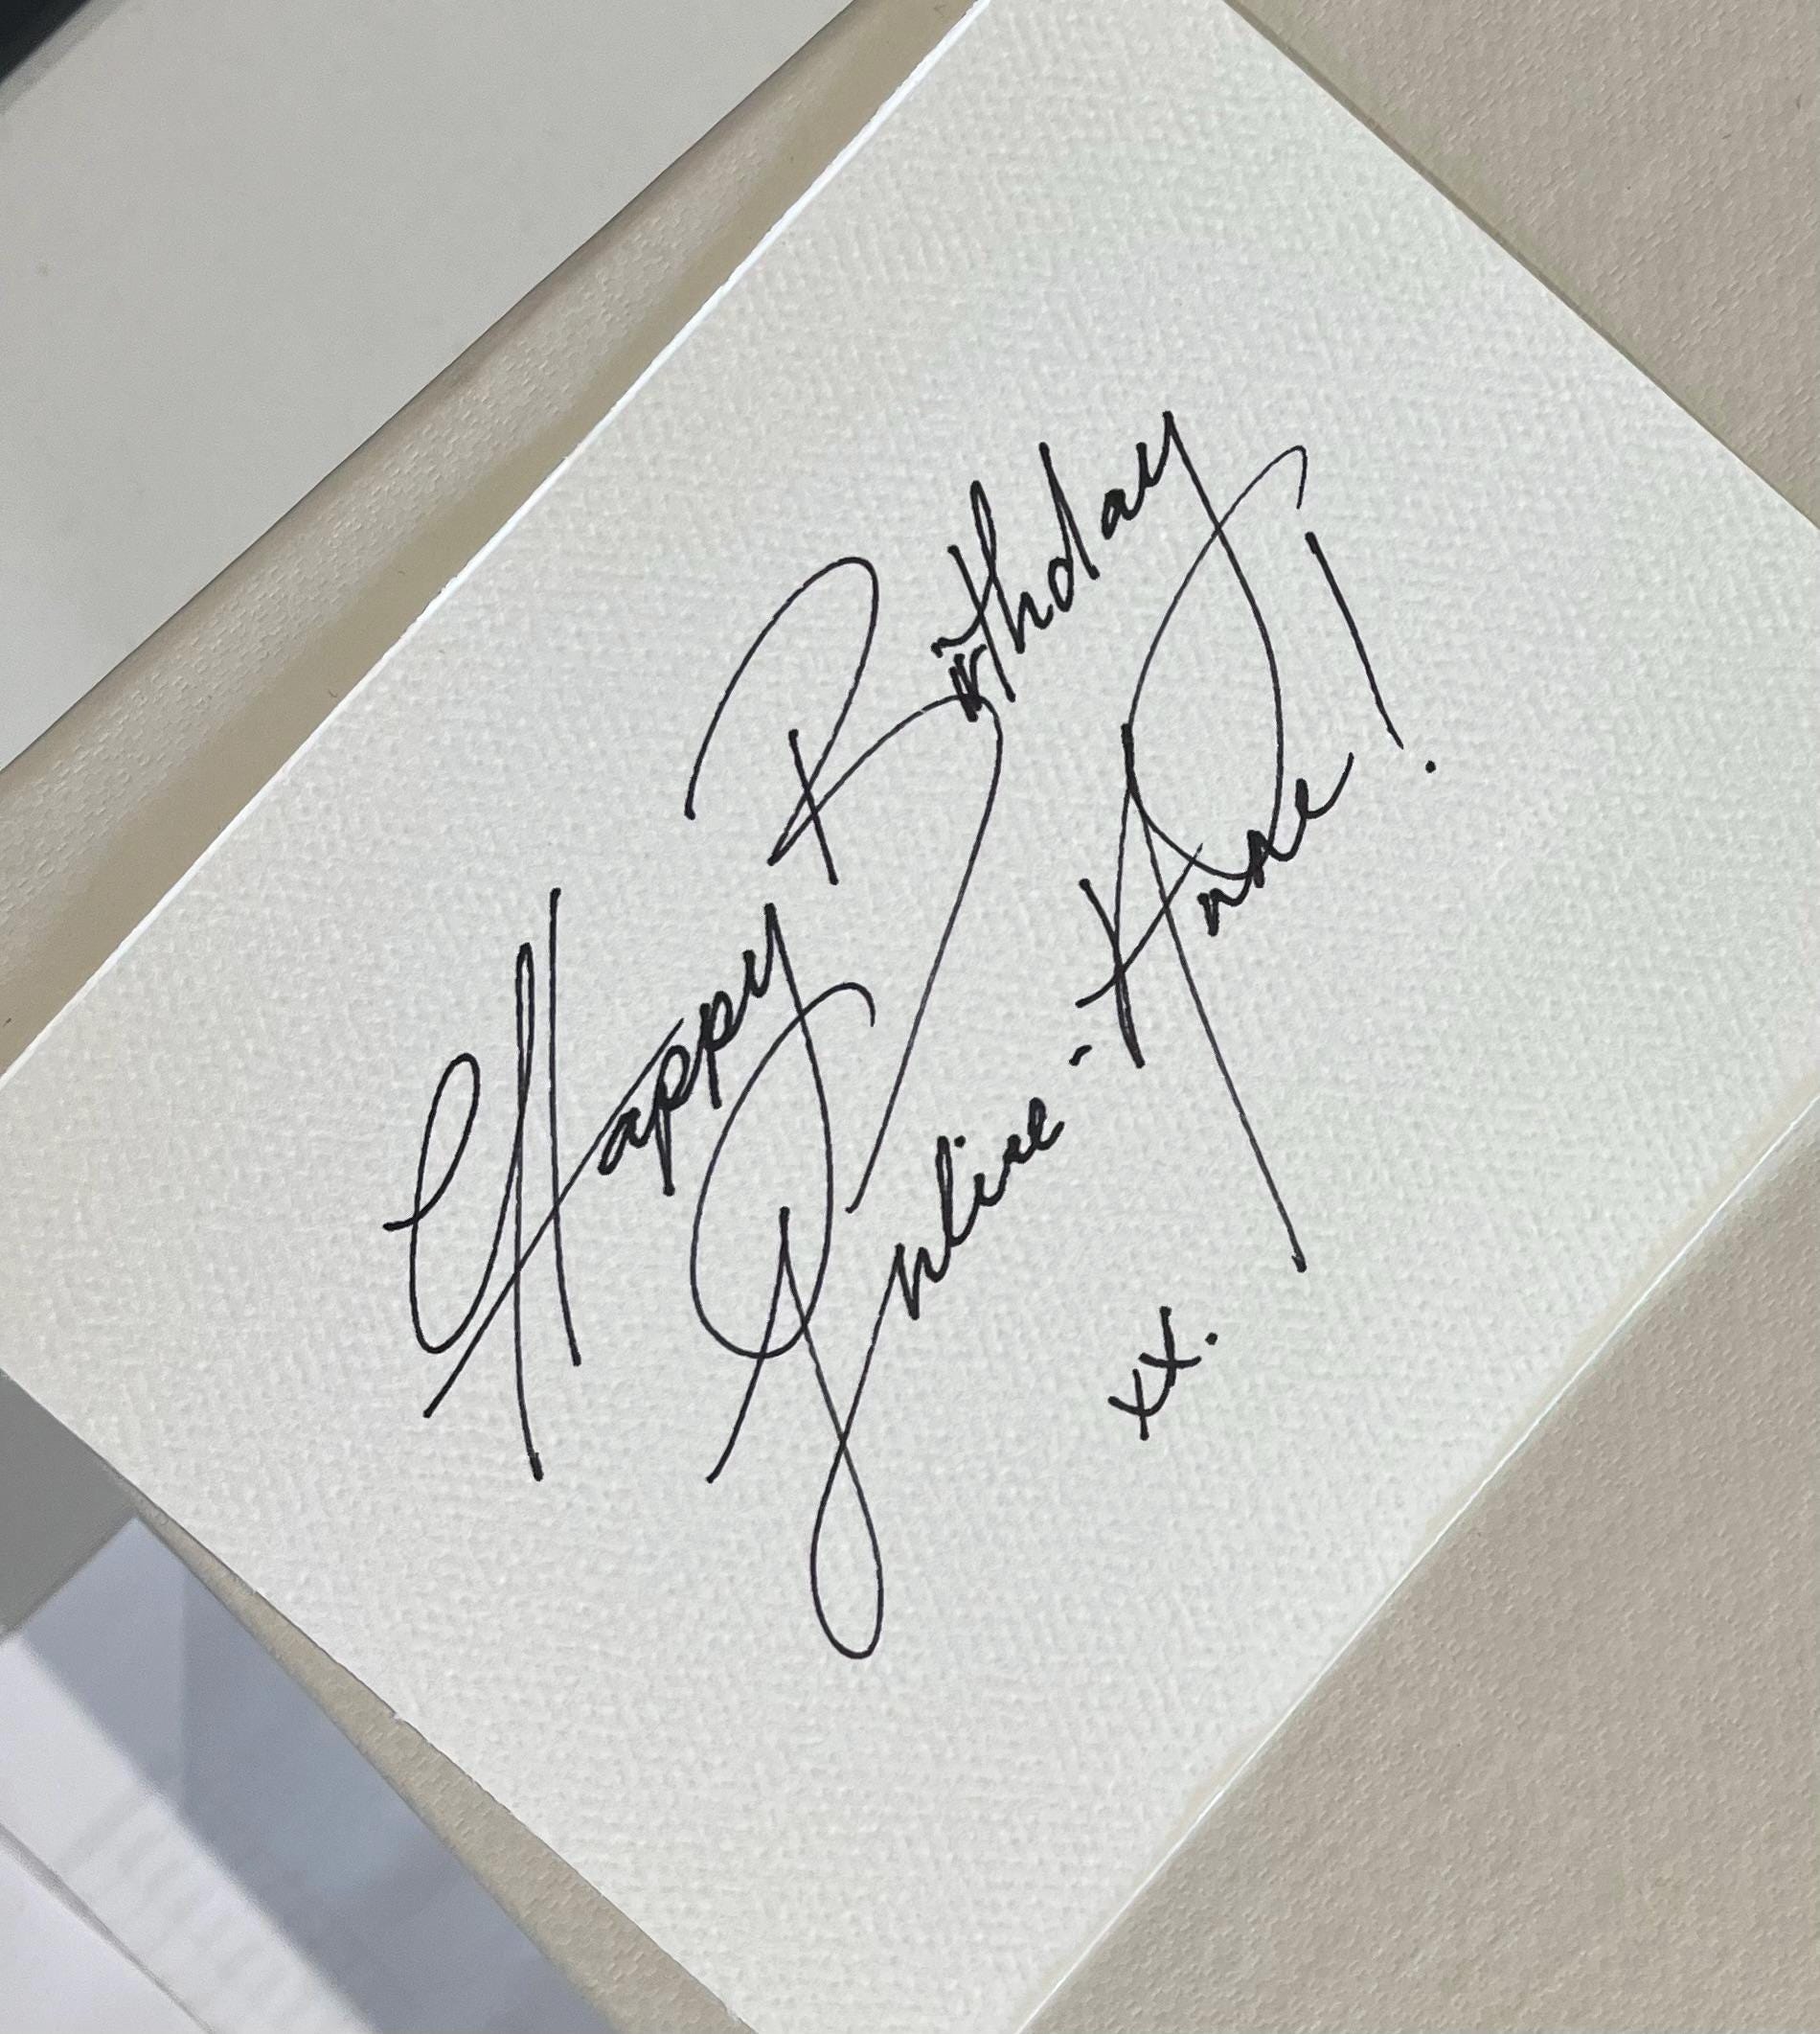 Happy Birthday
Julice-Anne!
xx.